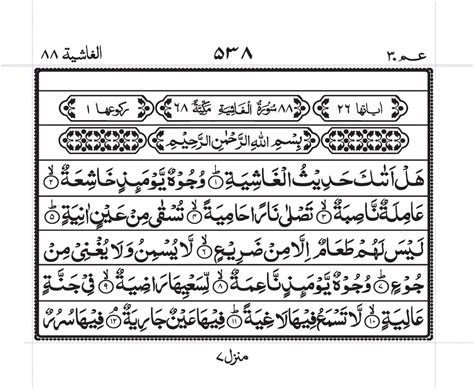 عـم ٣٠ ٥٣٨ الغاشية ٨٨
اٰیاتها ٢٦ ٨٨ سُوْرَةُ الْغَاشِيَةِ مَكِّيَّةٌ ٦٨ رکوعها ١
بِسْمِ اللّٰهِ الرَّحْمٰنِ الرَّحِيْمِ
هَلْ اَتٰىكَ حَدِيْثُ الْغَاشِيَةِ ١ وُجُوْهٌ يَّوْمَئِذٍ خَاشِعَةٌ ٢
عَامِلَةٌ نَّاصِبَةٌ ٣ تَصْلٰى نَارًا حَامِيَةً ٤ تُسْقٰى مِنْ عَيْنٍ اٰنِيَةٍ ٥
لَيْسَ لَهُمْ طَعَامٌ اِلَّا مِنْ ضَرِيْعٍ ٦ لَّا يُسْمِنُ وَلَا يُغْنِيْ مِنْ
جُوْعٍ ٧ وُجُوْهٌ يَّوْمَئِذٍ نَّاعِمَةٌ ٨ لِّسَعْيِهَا رَاضِيَةٌ ٩ فِيْ جَنَّةٍ
عَالِيَةٍ ١٠ لَّا تَسْمَعُ فِيْهَا لَاغِيَةً ١١ فِيْهَا عَيْنٌ جَارِيَةٌ ١٢ فِيْهَا سُرُرٌ
منزل ٧